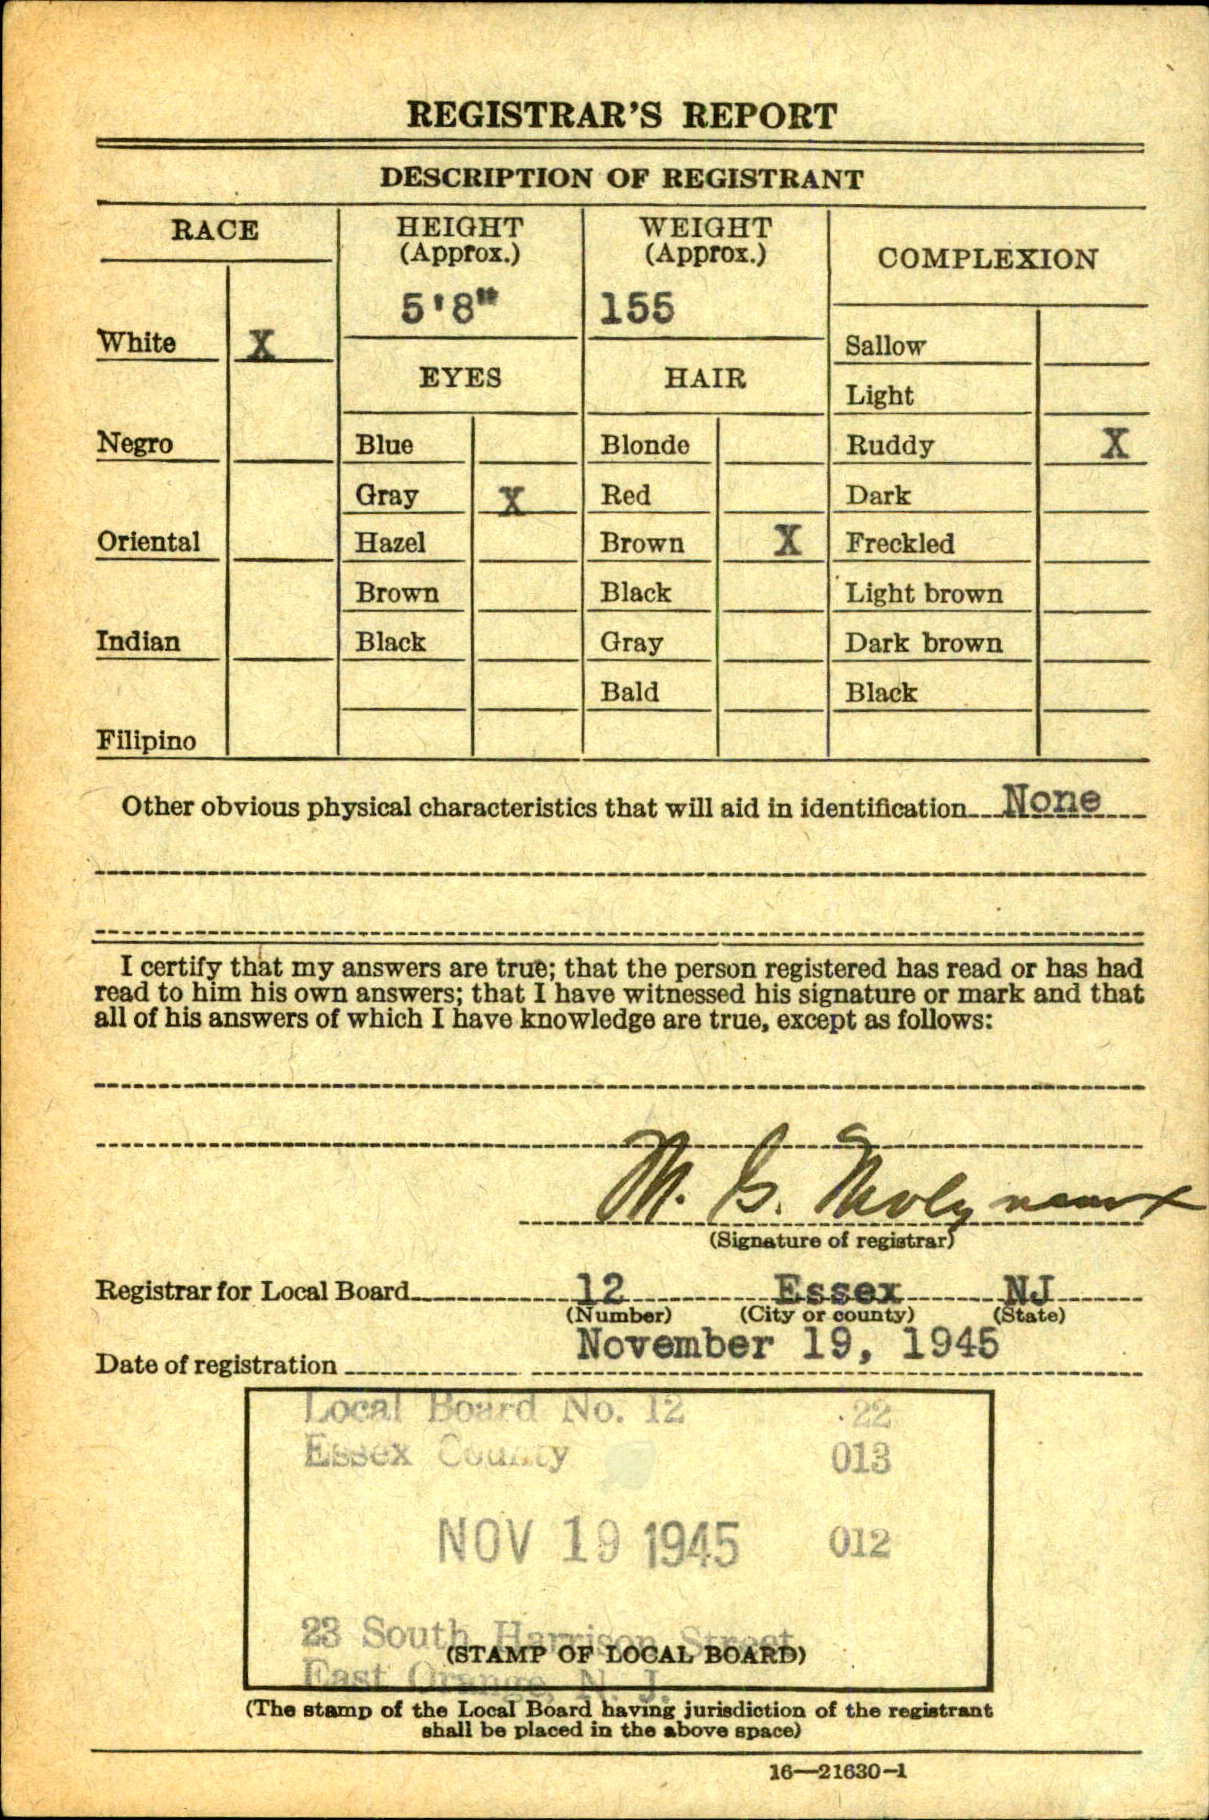 REGISTRAR'S REPORT
DESCRIPTION OF REGISTRANT
RACE
HEIGHT
(Approx.)
WEIGHT
(Approx.)
COMPLEXION
5'8"
155
White X
EYES
HAIR
Sallow
Light
Negro
Blue
Blonde
Ruddy X
Gray X
Red
Dark
Oriental
Hazel
Brown X
Freckled
Brown
Black
Light brown
Indian
Black
Gray
Dark brown
Bald
Black
Filipino
Other obvious physical characteristics that will aid in identification None
I certify that my answers are true; that the person registered has read or has had
read to him his own answers; that I have witnessed his signature or mark and that
all of his answers of which I have knowledge are true, except as follows:
M. G. Molyneaux
(Signature of registrar)
Registrar for Local Board 12 Essex NJ
(Number) (City or county) (State)
Date of registration November 19, 1945
Local Board No. 12 22
Essex County 013
NOV 19 1945 012
23 South Harrison Street
(STAMP OF LOCAL BOARD)
East Orange, N. J.
(The stamp of the Local Board having jurisdiction of the registrant
shall be placed in the above space)
16—21630-1